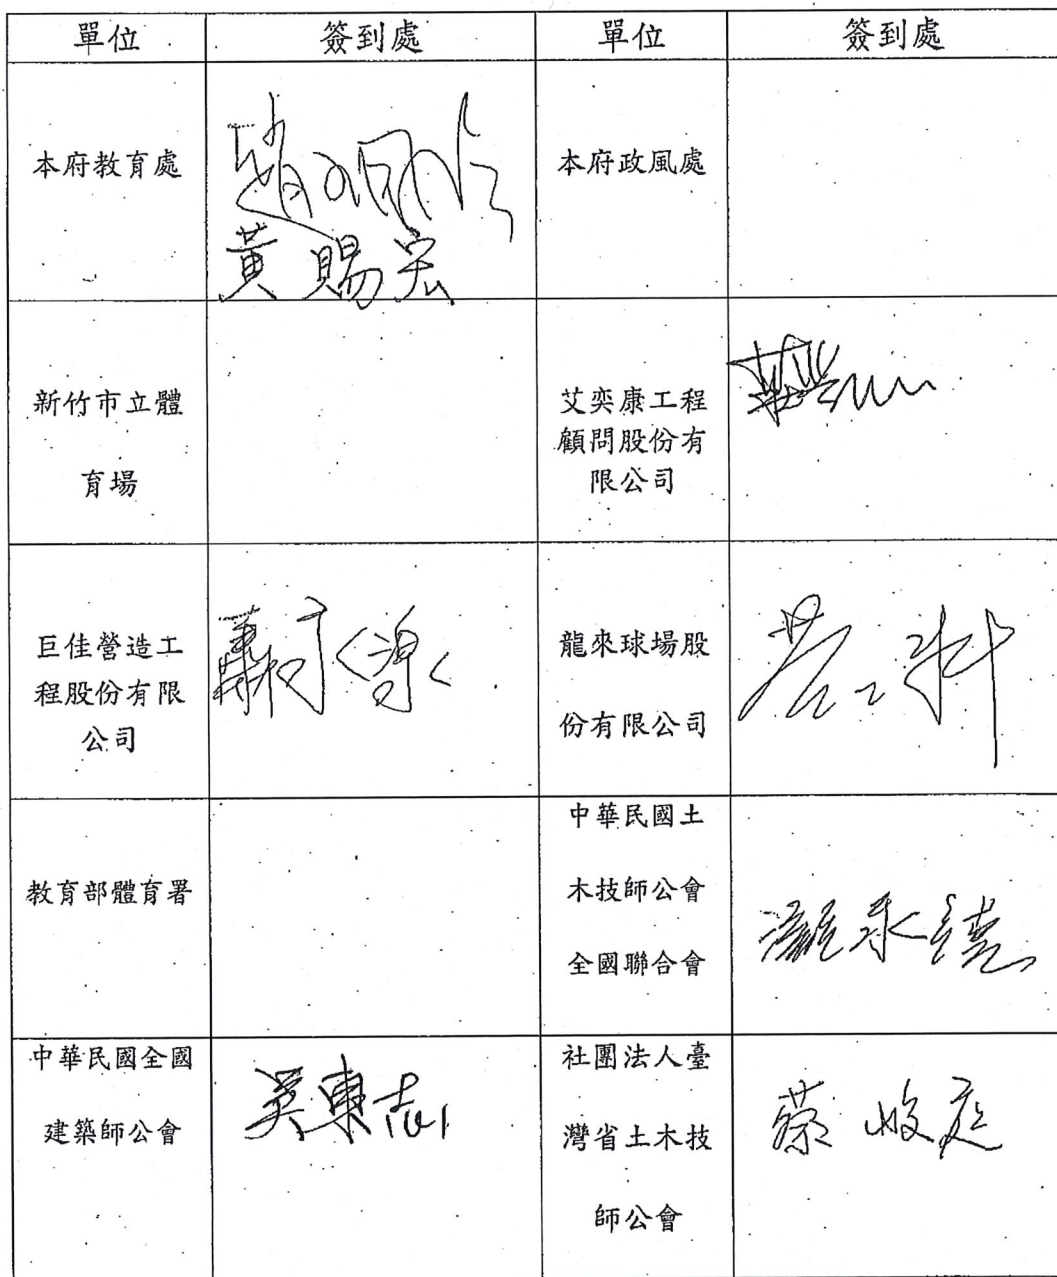 單位 簽到處 單位 簽到處
本府教育處
黃賜宏
本府政風處
新竹市立體
育場
艾奕康工程
顧問股份有
限公司
巨佳營造工
程股份有限
公司
龍來球場股
份有限公司
教育部體育署
中華民國土
木技師公會
全國聯合會
中華民國全國
建築師公會
吳東志
社團法人臺
灣省土木技
師公會
蔡